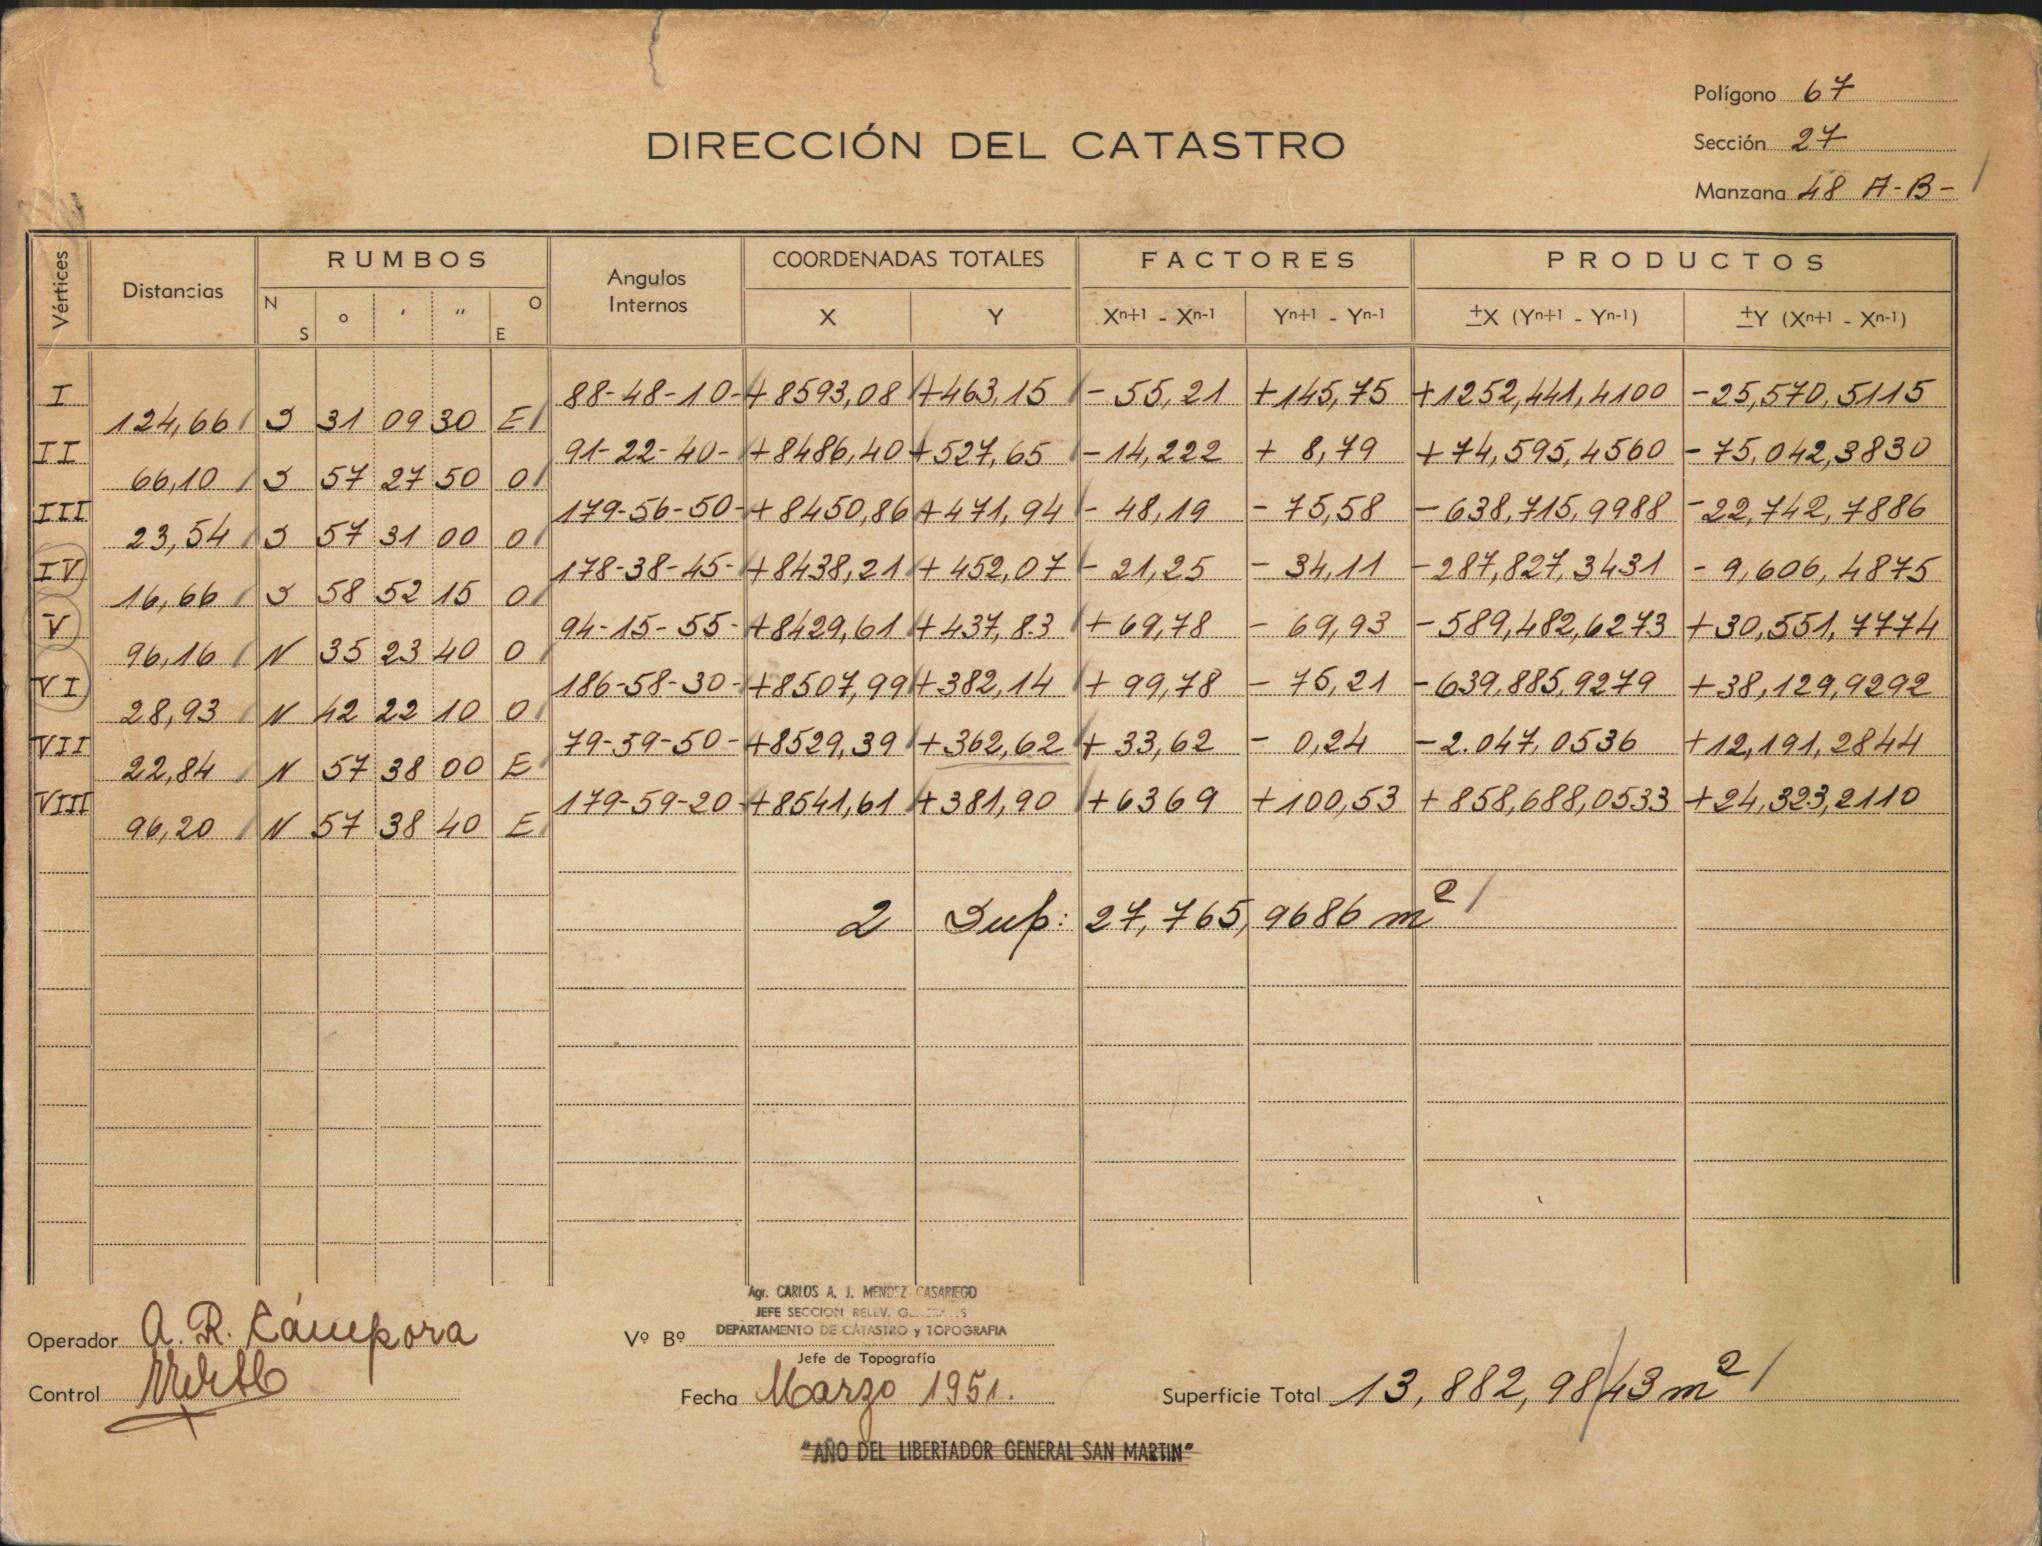 Polígono 67
DIRECCIÓN DEL CATASTRO
Sección 27
Manzana 48 A-B-
Vértices Distancias RUMBOS Angulos Internos COORDENADAS TOTALES FACTORES PRODUCTOS
N S ° ' " O E X Y Xn+1 - Xn-1 Yn+1 - Yn-1 ±X (Yn+1 - Yn-1) ±Y (Xn+1 - Xn-1)
I 88-48-10- +8593,08 +463,15 -55,21 +145,75 +1252,441,4100 -25,570,5115
124,66 S 31 09 30 E
II 91-22-40- +8486,40 +527,65 -14,222 + 8,79 +74,595,4560 -75,042,3830
66,10 S 57 27 50 O
III 179-56-50- +8450,86 +471,94 - 48,19 - 75,58 -638,715,9988 -22,742,7886
23,54 S 57 31 00 O
IV 178-38-45- +8438,21 +452,07 - 21,25 - 34,11 -287,827,3431 - 9,606,4875
16,66 S 58 52 15 O
V 94-15-55- +8429,61 +437,83 + 69,78 - 69,93 -589,482,6273 +30,551,7774
96,16 N 35 23 40 O
VI 186-58-30- +8507,99 +382,14 + 99,78 - 75,21 -639,885,9279 +38,129,9292
28,93 N 42 22 10 O
VII 79-59-50- +8529,39 +362,62 + 33,62 - 0,24 -2.047,0536 +12,191,2844
22,84 N 57 38 00 E
VIII 179-59-20 +8541,61 +381,90 +6369 +100,53 +858,688,0533 +24,323,2110
96,20 N 57 38 40 E
2 Sup: 27,765,9686 m²
Agr. CARLOS A. J. MENDEZ CASARIEGO
JEFE SECCION RELEV.
Operador A. R. Cámpora Vº Bº DEPARTAMENTO DE CATASTRO y TOPOGRAFIA
Jefe de Topografía
Control Fecha Marzo 1951. Superficie Total 13,882,9843 m²
"AÑO DEL LIBERTADOR GENERAL SAN MARTIN"